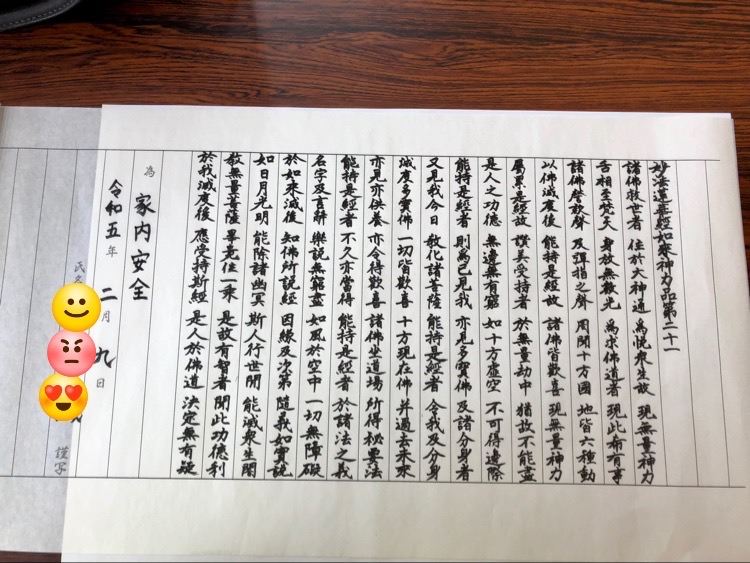 妙法蓮華経如来神力品第二十一
諸佛救世者 住於大神通 為悦衆生故 現無量神力
舌相至梵天 身放無数光 為求佛道者 現此希有事
諸佛謦欬聲 及弾指之聲 周聞十方國 地皆六種動
以佛滅度後 能持是經故 諸佛皆歓喜 現無量神力
属累是經故 讃美受持者 於無量劫中 猶故不能盡
是人之功徳 無邊無有窮 如十方虚空 不可得邊際
能持是經者 則為已見我 亦見多寶佛 及諸分身者
又見我今日 教化諸菩薩 能持是經者 令我及分身
滅度多寶佛 一切皆歓喜 十方現在佛 并過去未来
亦見亦供養 亦令得歓喜 諸佛坐道場 所得秘要法
能持是經者 不久亦當得 能持是經者 於諸法之義
名字及言辭 樂説無窮盡 如風於空中 一切無障礙
於如来滅後 知佛所説經 因縁及次第 随義如實説
如日月光明 能除諸幽冥 斯人行世間 能滅衆生闇
教無量菩薩 畢竟住一乗 是故有智者 聞此功徳利
於我滅度後 應受持斯經 是人於佛道 決定無有疑
為 家内安全
令和五年 二月 九日
氏名
謹写